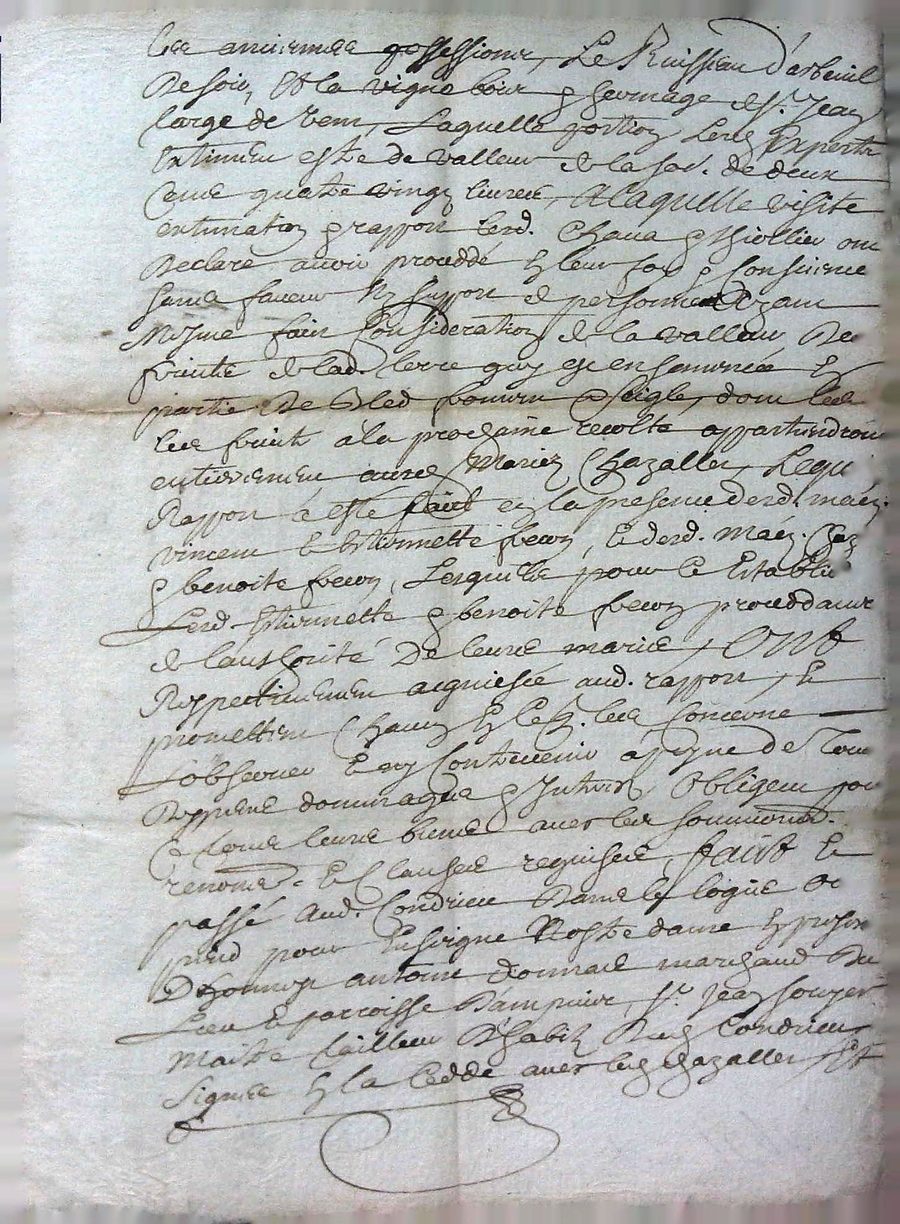 les anciennes possessions, Le Ruisseau d'arbuel
De soir, Et la vigne pour & hermage de Sr. Jean
large de vent, Laquelle portion Lesd Experts
Estiment estre de valleur de la so. de deux
Cens quatre vingt livres, A laquelle visite
estimation & rapport lesd. Chana & thiollier ont
Declaré avoir proceddé En leur foy & Conscience
sans faveur ny suppor de personne Ayant
Mesme fait Consideration de la valleur Des
fruits de lad. terre quy est ensemencée En
partie De Bled froment & seigle, dont les
les fruit à la prochaine recolte appartiendront
entierement auxd Mariez Chazalles, Lequ
Rapport à esté fait en la presence desd. mariez.
vincent & Estiennette frecon, & desd. Mariez. Chaz
& benoite frecon, Lesquelles pour ce Establie
Lesd. Estiennette & benoite frecon proceddants
de l'authorité De leurs maries, Ont
Respectivement acquiescé aud. rapport, Et
promettent Chacun En ce q. les Concerne
L'observer Et ny Contrevenir à peyne de Tous
Despens dommages & Interests Obligeant pour
Ce tous leurs biens avec les soumissions.
renonc. Et Clauses requises, fait Et
passé aud. Condrieu Dans le logis où
pend pour Enseigne Nostre dame En presence
D'honneste antoine donnad marchand Du
Lieu & parroisse D'ampuis, Sr. Jean souzer
Maistre tailleur D'habits Dud Condrieu
Signés En la Cedde avec lesd Chazalles, Et